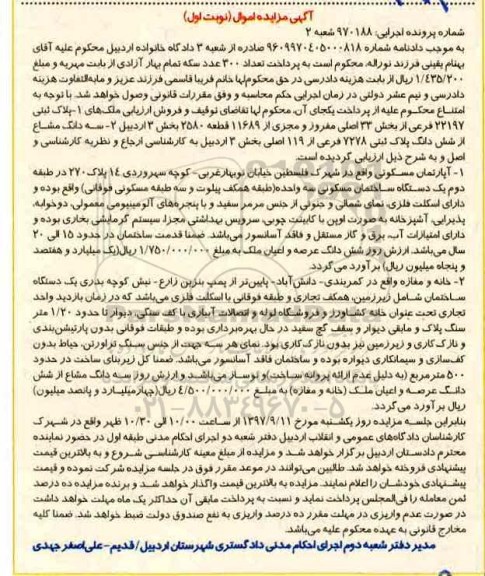 آگهی مزایده اموال (نوبت اول)
شماره پرونده اجرایی: ۹۷۰۱۸۸ شعبه ۲
به موجب دادنامه شماره ۹۶۰۹۹۷۰۴۰۵۰۰۰۸۱۸ صادره از شعبه ۳ دادگاه خانواده اردبیل محکوم علیه آقای
بهنام یقینی فرزند نوراله، محکوم است به پرداخت تعداد ۳۰۰ عدد سکه تمام بهار آزادی از بابت مهریه و مبلغ
۱/۴۳۵/۲۰۰ ریال از بابت هزینه دادرسی در حق محکوم‌لها خانم فریبا قاسمی فرزند عزیز و مابه‌التفاوت هزینه
دادرسی و نیم عشر دولتی در زمان اجرایی حکم محاسبه و وفق مقررات قانونی وصول خواهد شد. با توجه به
امتناع محکوم علیه از پرداخت یکجای آن، محکوم لها تقاضای توقیف و فروش ارزیابی ملک‌های ۱-پلاک ثبتی
۲۲۱۹۷ فرعی از بخش ۳۳ اصلی مفروز و مجزی از ۱۱۶۸۹ قطعه ۲۵۸۰ بخش ۳ اردبیل ۲- سه دانگ مشاع
از شش دانگ پلاک ثبتی ۷۲۷۸ فرعی از ۱۱۹ اصلی بخش ۳ اردبیل به کارشناسی ارجاع و نظریه کارشناسی و
اصل و به شرح ذیل ارزیابی گردیده است.
۱- آپارتمان مسکونی واقع در شهرک فلسطین خیابان نوبهارغربی- کوچه سهروردی ۱۴ پلاک ۲۷۰ در طبقه
دوم یک دستگاه ساختمان مسکونی سه واحده(طبقه همکف پیلوت و سه طبقه مسکونی فوقانی) واقع بوده و
دارای اسکلت فلزی، نمای شمالی و جنوبی از جنس مرمر سفید و با پنجره‌های آلومینیومی معمولی، دوخوابه،
پذیرایی، آشپزخانه به صورت اوپن با کابینت چوبی، سرویس بهداشتی مجزا، سیستم گرمایشی بخاری بوده و
دارای امتیازات آب برق و گاز مستقل و فاقد آسانسور می‌باشد. ضمنا قدمت ساختمان در حدود ۱۵ الی ۲۰
سال می‌باشد. ارزش روز شش دانگ عرصه و اعیان ملک به مبلغ ۱/۷۵۰/۰۰۰/۰۰۰ ریال(یک میلیارد و هفتصد
و پنجاه میلیون ریال) برآورد می‌گردد.
۲- خانه و مغازه واقع در کمربندی- دانش‌آباد- پایین‌تر از پمپ بنزین زارع- نبش کوچه بدری یک دستگاه
ساختمان شامل زیرزمین، همکف تجاری و طبقه فوقانی با اسکلت فلزی می‌باشد که در زمان بازدید واحد
تجاری تحت عنوان خانه کشاورز و فروشگاه لوله و اتصالات آبیاری با کف سنگی، دیوار تا حدود ۱/۲۰ متر
سنگ پلاک و مابقی دیوار و سقف گچ سفید در حال بهره‌برداری بوده و طبقات فوقانی بدون پارتیشن‌بندی
و نازک کاری و زیرزمین نیز بدون نازک کاری بود. نمای هر سه جهت از جنس سنگ تراورتن، حیاط بدون
کف‌سازی و سیمانکاری دیواره بوده و ساختمان فاقد آسانسور می‌باشد. ضمنا کل زیربنای ساخت در حدود
۵۰۰ متر مربع (به دلیل عدم ارائه پروانه ساخت) و نوساز می‌باشد و ارزش روز سه دانگ مشاع از شش
دانگ عرصه و اعیان ملک (خانه و مغازه) به مبلغ ۴/۵۰۰/۰۰۰/۰۰۰ ریال (چهارمیلیارد و پانصد میلیون)
ریال برآورد می‌گردد.
بنابراین جلسه مزایده روز یکشنبه مورخ ۱۳۹۷/۹/۱۱ از ساعت ۱۰/۰۰ الی ۱۰/۳۰ ظهر واقع در شهرک
کارشناسان دادگاه‌های عمومی و انقلاب اردبیل دفتر شعبه دو اجرای احکام مدنی طبقه اول در حضور نماینده
محترم دادستان اردبیل برگزار خواهد شد و مزایده از مبلغ معینه کارشناسی شروع و به بالاترین قیمت
پیشنهادی فروخته خواهد شد. طالبین می‌توانند در موعد مقرر فوق در جلسه مزایده شرکت نموده و قیمت
پیشنهادی خودشان را اعلام نمایند. مزایده به بالاترین قیمت واگذار خواهد شد و برنده مزایده ده درصد
ثمن معامله را فی‌المجلس پرداخت نماید و نسبت به پرداخت مابقی آن حداکثر یک ماه مهلت خواهد داشت
در صورت عدم واریزی در مهلت مقرر ده درصد واریزی به نفع صندوق دولت ضبط خواهد شد. ضمنا کلیه
مخارج قانونی به عهده محکوم علیه می‌باشد.
مدیر دفتر شعبه دوم اجرای احکام مدنی دادگستری شهرستان اردبیل/ قدیم- علی‌اصغر جهدی
۰۲۱-۸۸۳۴۹۶۷۰-۵